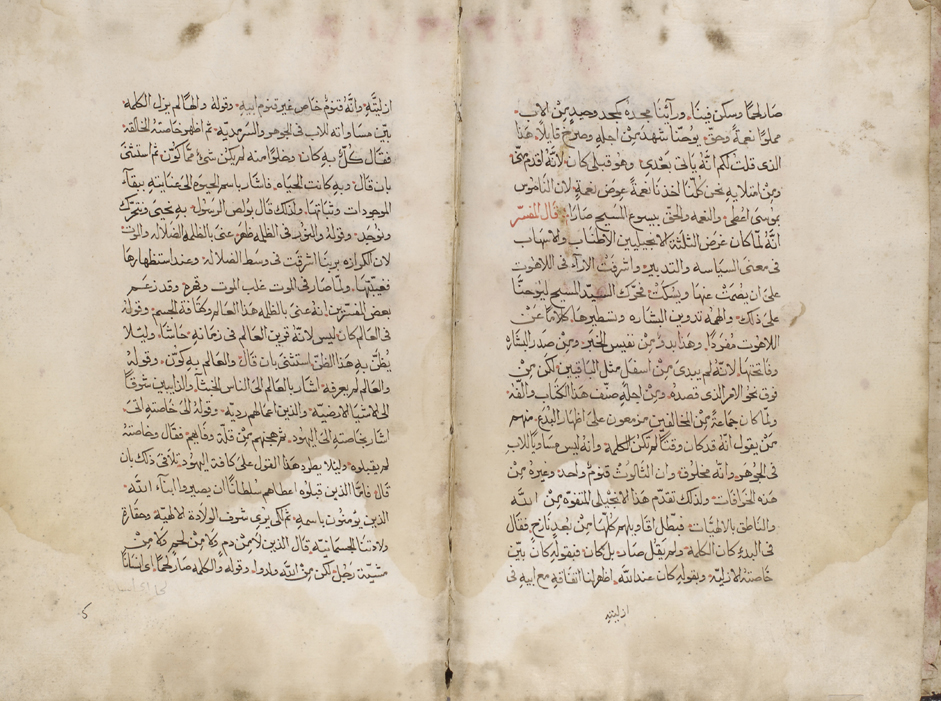 صار لحمًا وسكن فينا. ورأينا مجده كمجد وحيد من الاب.
مملوًا نعمةً وحق. يوحنا شهد من اجله وصرخ قايلًا. هذا
الذى قلت لكم انّه ياتى بعدى. وهو قبلى كان لانّه اقدم منّى
ومن امتلايه نحن كلّنا اخذنا نعمةً عوض نعمةٍ لان الناموس
بموسى اعطى. والنعمه والحق بيسوع المسيح صارا: قال المفسّر
انّه لمّا كان غرض الثلثة الانجيليين الاطناب والاسهاب
فى معنى السياسه والتدبير. واشرفت الارآء فى اللاهوت
على ان يصمت عنها ويسكت. فحرّك السيد المسيح ليوحنّا
على ذلك. والهمه تدوين البشاره وتسطيرها كلامًا عن
اللاهوت مفردًا. وهذا بدو من نفيس الخبر. ومن صدر البشاره
وفاتحتها. لانّه لم يبدى من اسفل مثل الباقيين لكن من
فوق نحو الامر الذى قصده. ومن اجله صنّف هذا الكتاب والّفه.
ولمّا كان جماعة من المخالفين مزمعون على اظهار البدع. منهم
من يقول انّه قد كان وقتًا لم تكن الكلمة. وانه ليس مساويًا للاب
فى الجوهر. وانّه مخلوق. وان الثالوث قنوم واحد. وغيره من
هذه الخرافات. ولذلك تقدّم هذا الانجيلى المتفوّه من الله
والناطق بالالهيّات. فبطّل اقاويلهم كلّها من بعد نازح. فقال
فى البدء كان الكلمة. ولم يقل صار. بل كان. فبقوله كان بيّن
خاصته الازليّه. وبقوله كان عند الله. اظهر لنا اتفاقه مع ابيه فى
ازليته
ازليتّه. وانّه قنوم خاص غير قنوم ابيه. وقوله والهًا لم يزل الكلمه.
بيّن مساواته للاب فى الجوهر والسرمديه. ثم اظهر خاصته الخالقة.
فقال كلٌّ به كان وخلوًا منه لم يكن شىء ممّا كوّن. ثم استثنى
بان قال. وبه كانت الحياه. فاشار باسم الحيوه الى عنايته ببقاء
الموجودات وثباتها. ولذلك قال بولص الرسول. به نحيى ونتحرّك
ونوجد. وقوله والنور فى الظلمه ظهر. عنى بالظلمه الضلاله والموت
لان الكرازه بربنا اشرقت فى وسط الضلالة. وعند استظهارها
فغيّبتها. ولمّا صار فى الموت غلب الموت وقهره. وقد زعم
بعض المفسّرين انه عنى بالظلمه هذا العالم وكثافة الجسم. وقوله
فى العالم كان. ليس لانّه قرين العالم فى زمانه حاشا. وليلا
يظنّ به هذا الظنّ استثنى بان قال. والعالم به كوّن. وقوله
والعالم لم يعرفه. اشار بالعالم الى الناس الخبثاء. والذايبين شوقًا
الى الاشيا الارضيّة. والذين اعمالهم رديّه. وقوله الى خاصّته اتى.
اشار بخاصته الى اليهود. ثم هجنهم من قلّة وفايهم. فقال وخاصته
لم يقبلوه. وليلا يطرد هذا القول على كافة اليهود. تلافى ذلك بان
قال فامّا الذين قبلوه اعطاهم سلطانًا ان يصيروا ابنآء الله.
الذين يومنون باسمه. ثم لكى يرى شرف الولادة الالهية. وحقارة
ولادتنا الجسمانيّه. قال الذين لا من دم. ولا من لحم. ولا من
مشيّة رجل. لكن من الله ولدوا. وقوله والكلمه صار لحمًا. اى انسانًا